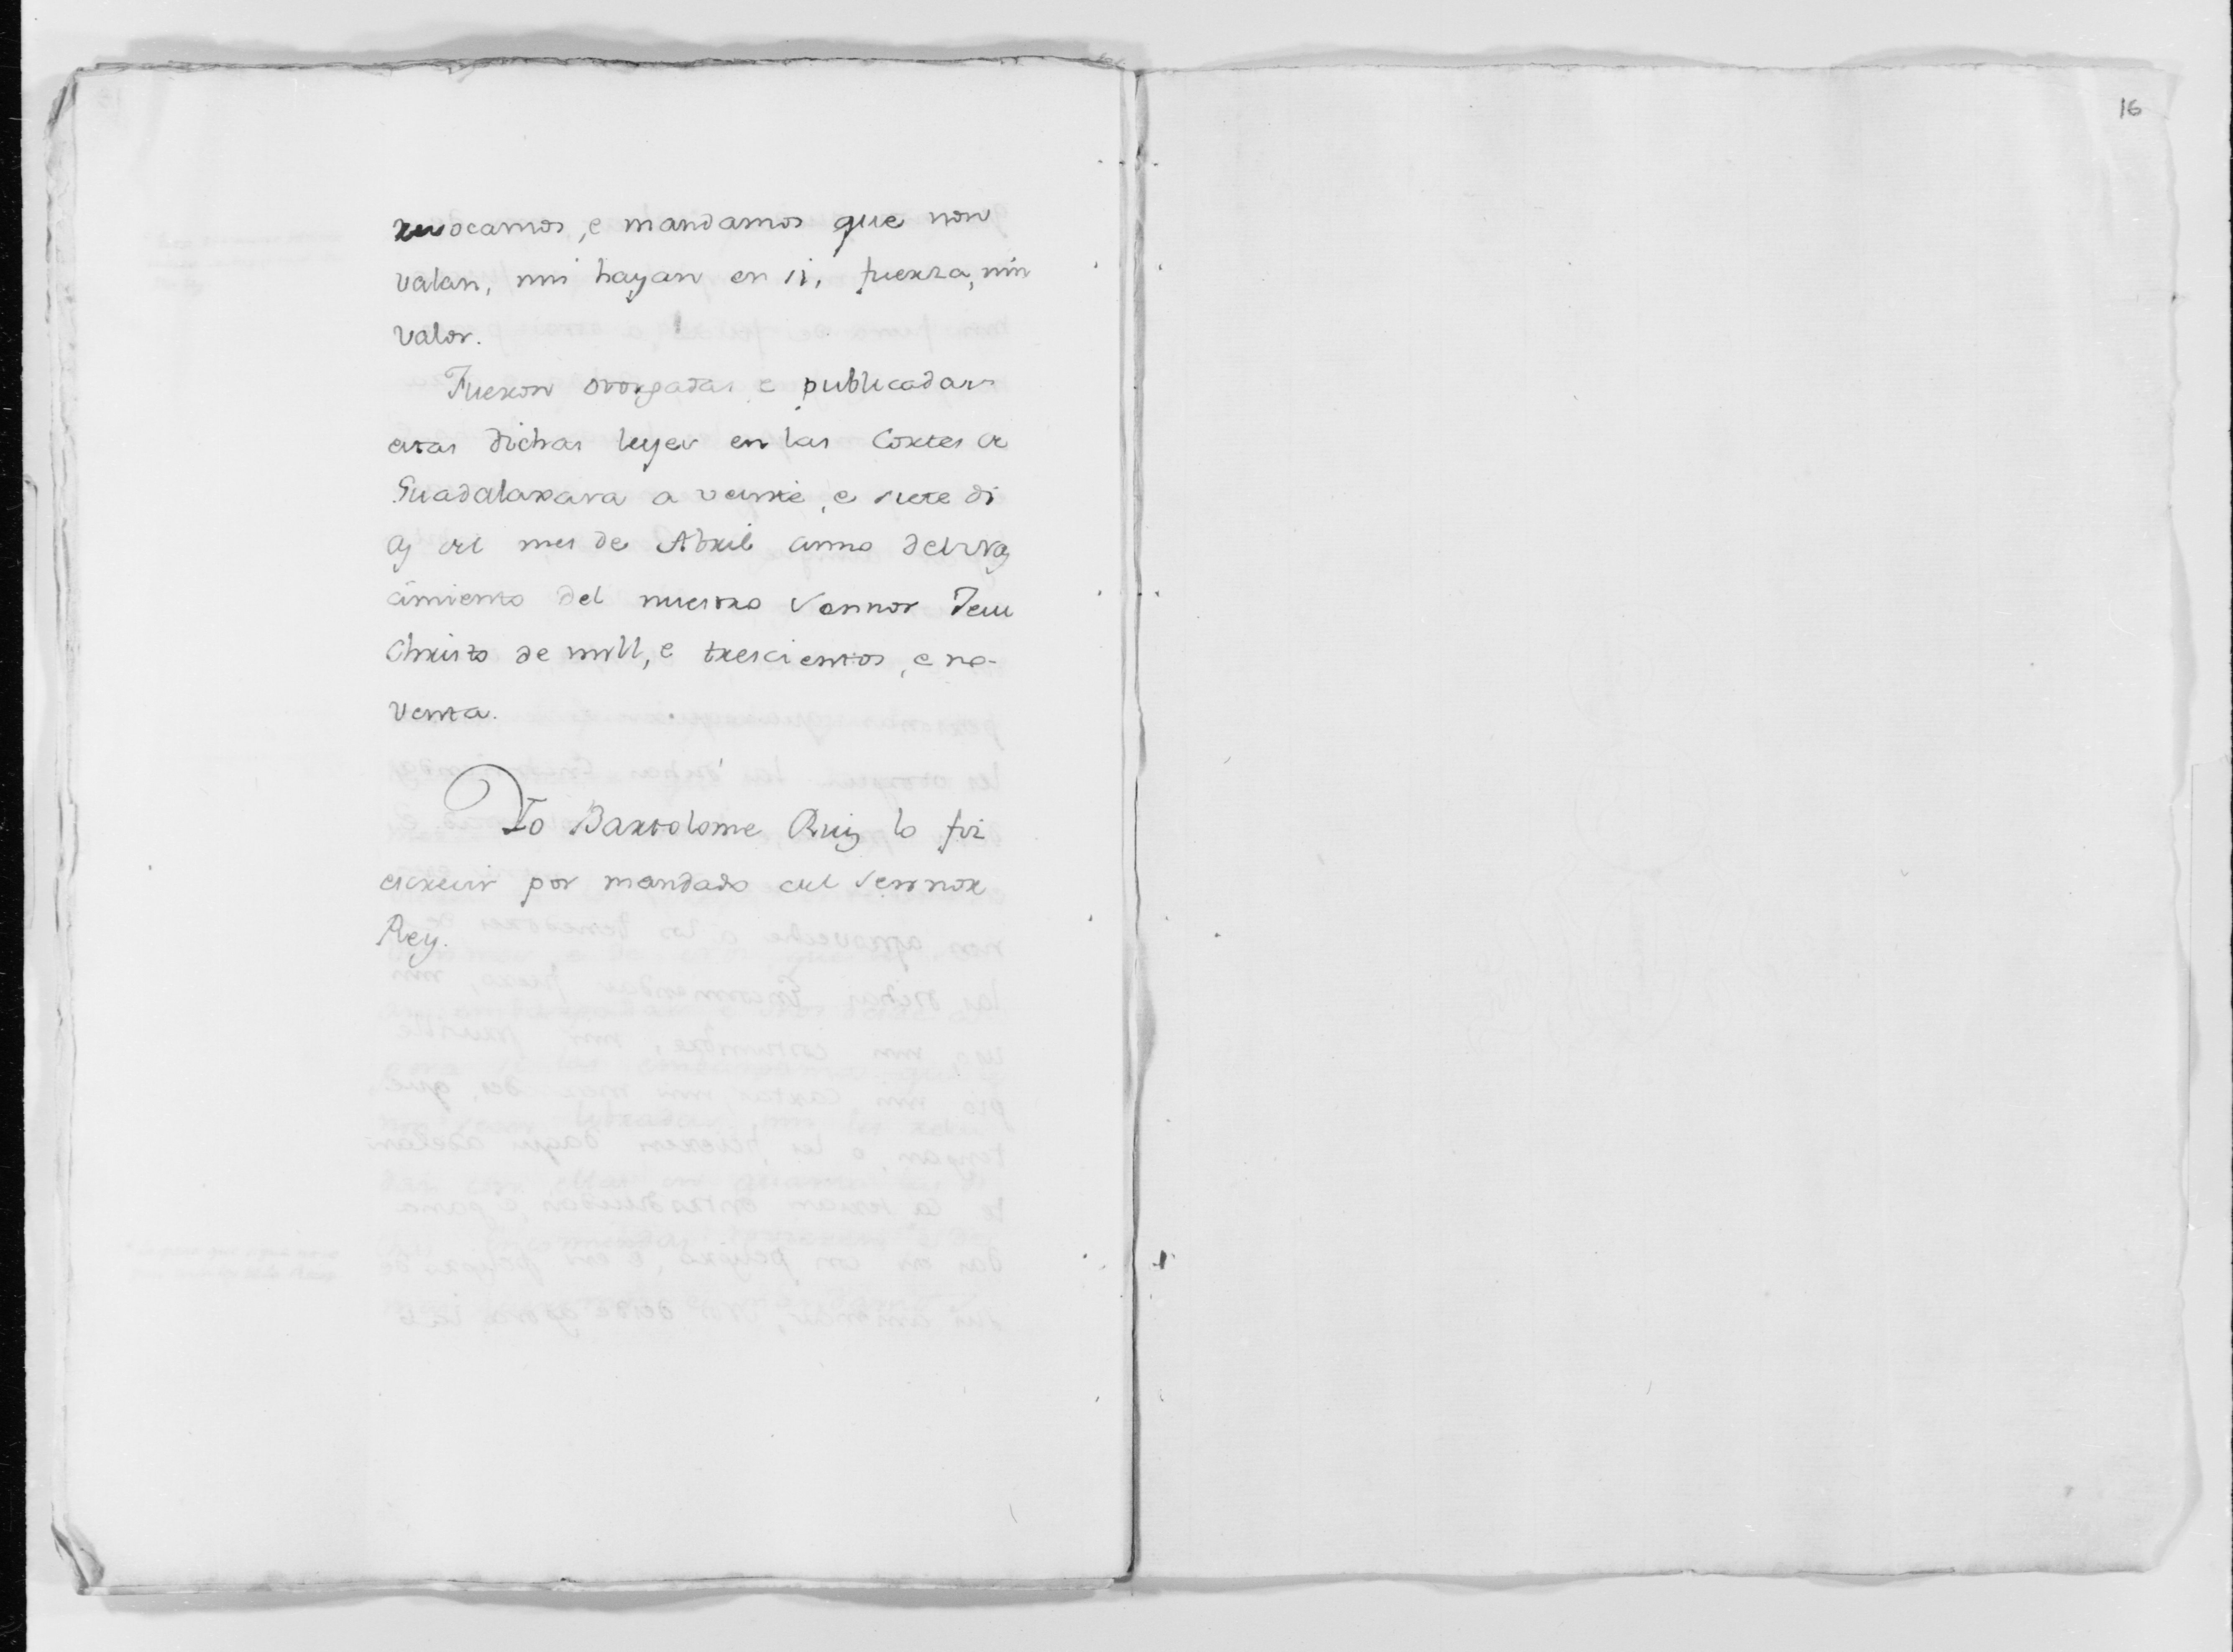 revocamos, e mandamos que non
valan, nin hayan en si, fuerza, nin
valor.
Fueron otorgadas e publicadas
estas dichas leyes en las Cortes de
Guadalaxara a veinte, e siete di
as del mes de Abril anno del Nas
cimiento del nuestro Sennor Jesu
Christo de mill, e trescientos, e no-
venta.
Yo Bartolome Ruiz lo fiz
escrevir por mandado del Sennor
Rey.
16